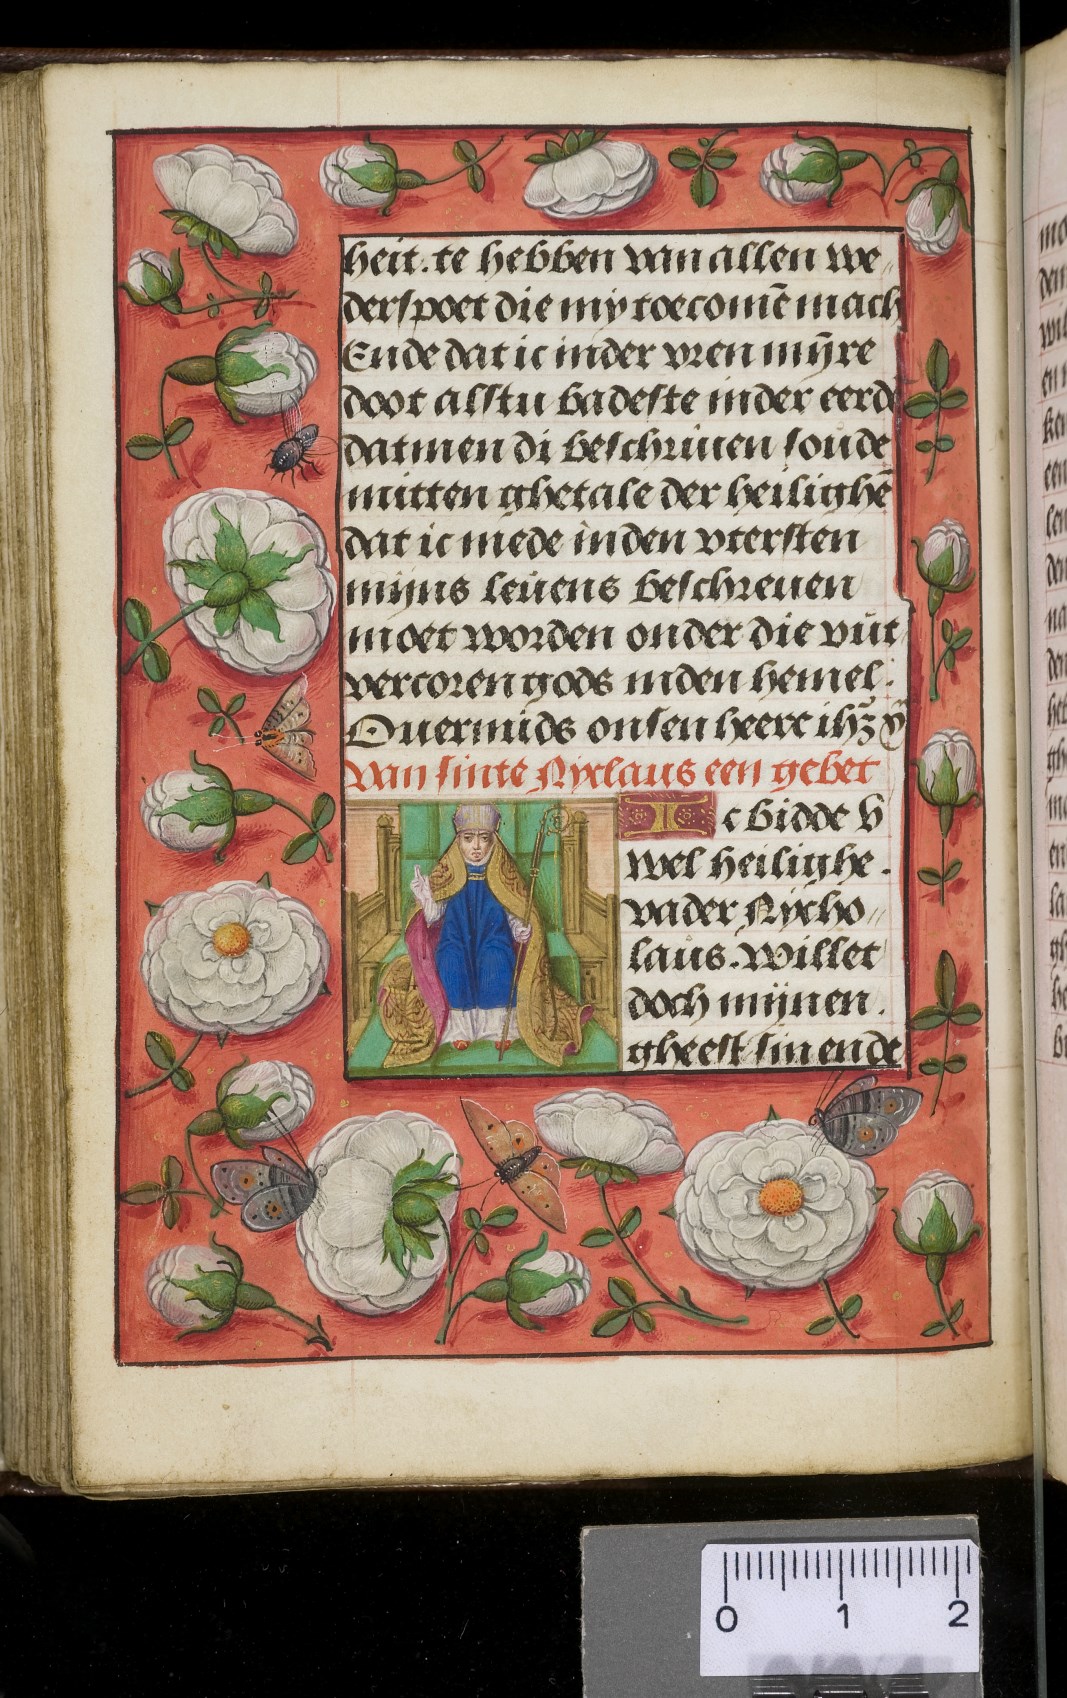 heit. te hebben van allen we〃
derspoet die my toecomē mach
Ende dat ic in der vren mȳre
doot alstu badeste in der eerdē
datmen di beschriuen soude
mitten ghetale der heilighē
dat ic mede in den vtersten
mijns leuens beschreuen
moet worden onder die vut
vercoren gods in den hemel.
Ouermids onsen heere ihꝫ
van sinte Nyclaus een gebet
Ic bidde v
wel heilighe.
vader Nycho〃
laus. Willet
doch mijnen.
gheest sin ende
0 1 2